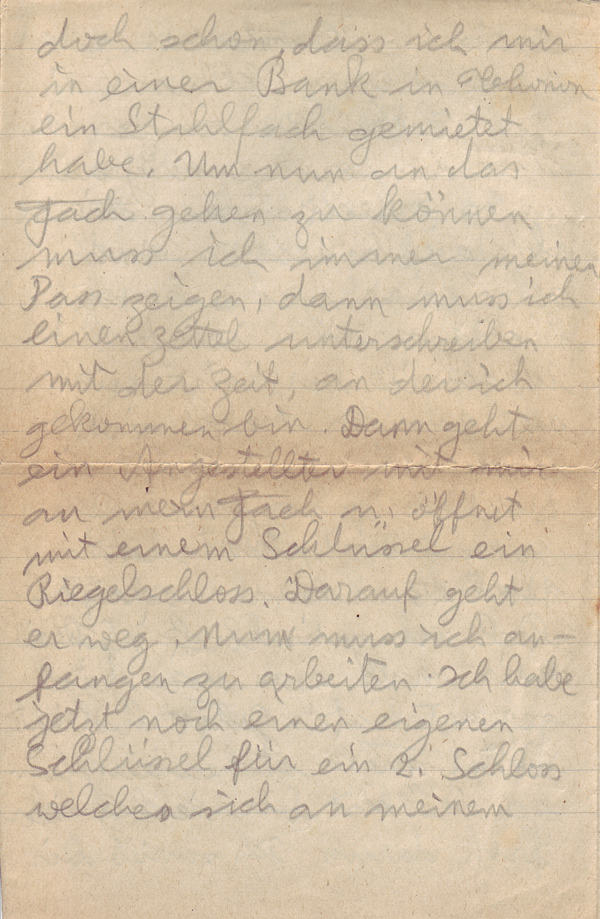 doch schon, dass ich mir
in einer Bank in
ein Stahlfach gemietet
habe. Um nun an das
Fach gehen zu können
muss ich immer meinen
Pass zeigen, dann muss ich
einen Zettel unterschreiben
mit der Zeit, an der ich
gekommen bin. Dann geht
ein Angestellter mit mir
an mein Fach u. öffnet
mit einem Schlüssel ein
Riegelschloss. Darauf geht
er weg. Nun muss ich an-
fangen zu arbeiten. Ich habe
jetzt noch einen eigenen
Schlüssel für ein 2. Schloss
welches sich an meinem